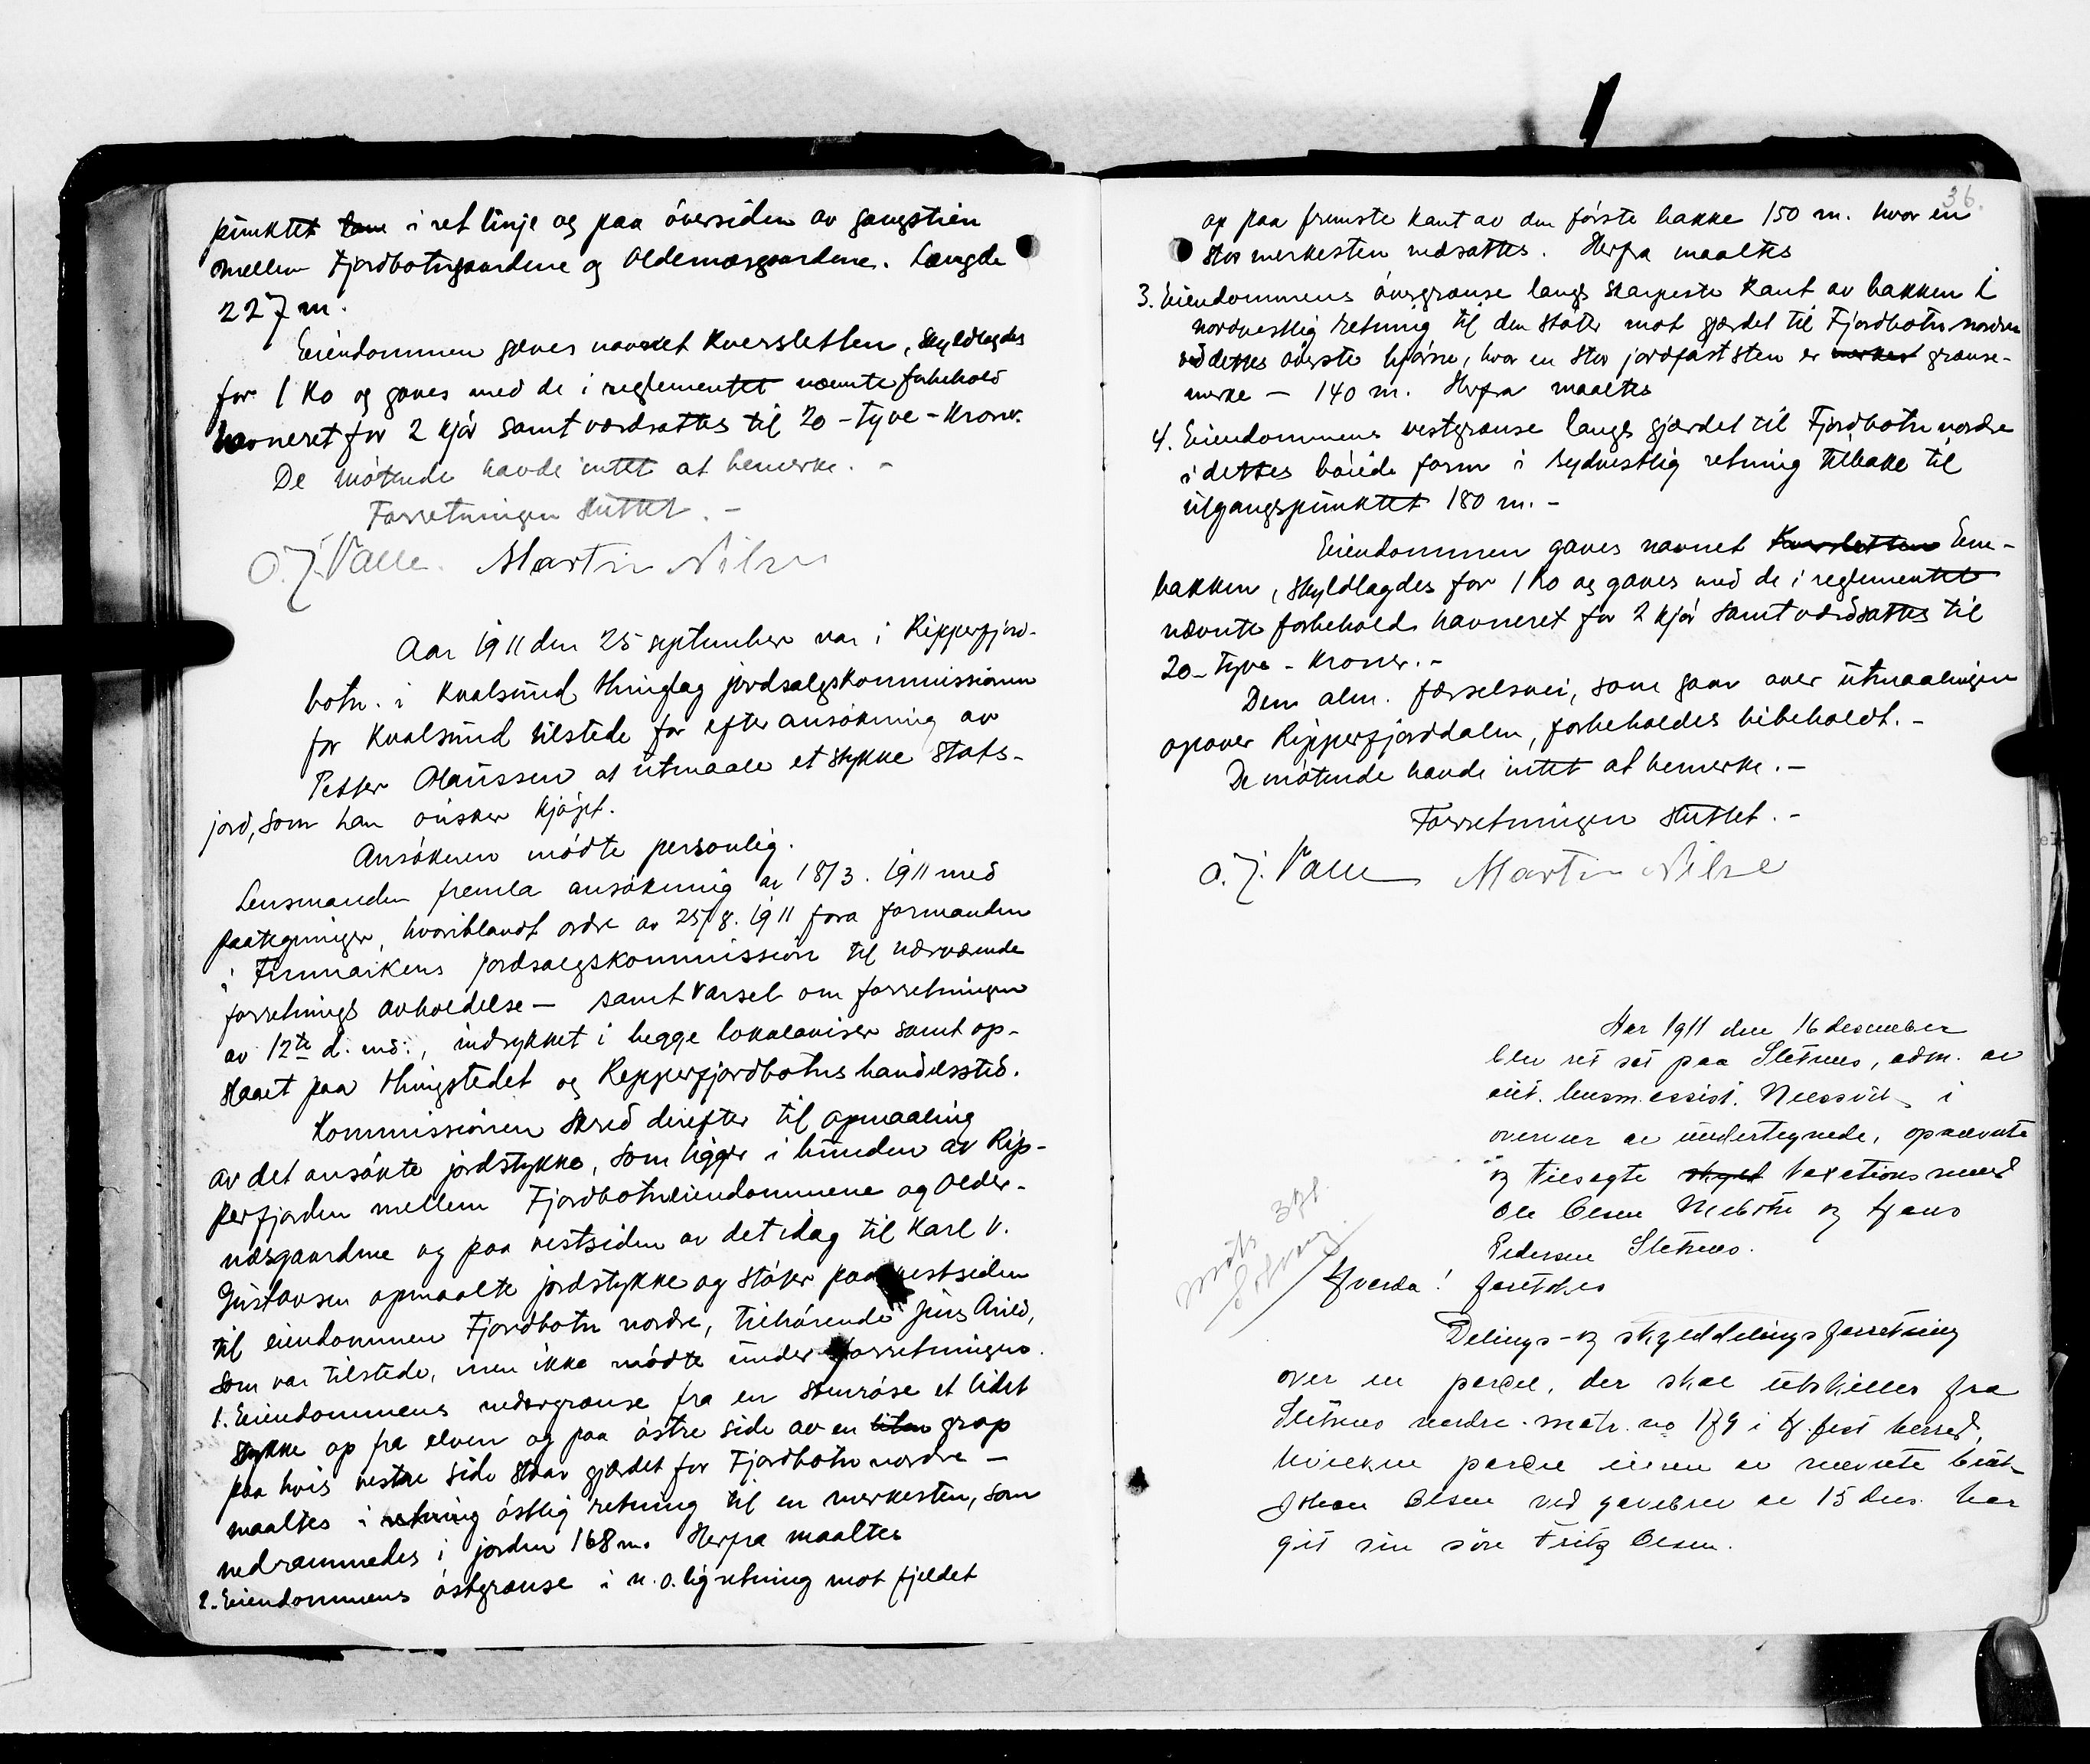 punktet i ret linje og paa översiden av gangstien
mellem Fjordbotngaardene og Oldernæsgaardene. Længde
227 m.
Eiendommen gaves navnet Kversletten, skyldlagdes
for 1 ko og gaves med de i reglementet nævnte forbehold
havneret for 2 kjör samt værdsattes til 20 - tyve - kroner.
De mötende havde intet at bemerke. -
Forretningen sluttet. -
O. J. Valle. Martin Nilsen
Aar 1911 den 25 september var i Ripperfjord-
botn. i Kvalsund thinglag jordsalgskommissionen
for Kvalsund tilstede for efter ansökning av
Petter Olaussen at utmaale et stykke stats-
jord, som han önsker kjöpt.
Ansökeren mödte personlig.
Lensmanden fremla ansökning av 18/3. 1911 med
paategninger, hvoriblandt ordre av 25/8. 1911 fora formanden
i Finmarkens jordsalgskommission til nærværende
forretnings avholdelse - samt varsel om forretningen
av 12te d. md:, indrykket i begge lokalaviser samt op-
slaaet paa thingstedet og Repperfjordbotns handelssted.
Kommissionen skred derefter til opmaaling
av det ansökte jordstykke, som ligger i bunden av Rip-
perfjorden mellem Fjordbotneiendommene og Older-
næsgaardene og paa vestsiden av det idag til Karl V.
Gustavsen opmaalte jordstykke og stöter paa vestsiden
til eiendommen Fjordbotn nordre, tilhörende Jens Arild,
som var tilstede, men ikke mödte under forretningen.
1. Eiendommens nedergrænse fra en stenröse et lidet
stykke op fra elven og paa östre side av en liten grop
paa hvis vestre side staar gjærdet for Fjordbotn nordre -
maaltes i retning östlig retning til en merkesten, som
nedrammedes i jorden 168 m. Herfra maaltes
2. Eiendommens östgrænse i n.o.lig retning mot fjeldet
36.
op paa fremste kant av den förste bakke 150 m. hvor en
stor merkesten nedsattes. Herfra maaltes
3. Eiendommens övregrænse langs skarpeste kant av bakken i
nordvestlig retning til den stöter mot gjærdet til Fjordbotn nordre
ved dettes överste hjörne, hvor en stor jordfast sten er merket grænse-
merke - 140 m. Herfra maaltes
4. Eiendommens vestgrænse langs gjærdet til Fjordbotn nordre
i dettes böiede form i sydvestlig retning tilbake til
utgangspunktet 180 m. -
Eiendommen gaves navnet Kversletten Ene-
bakken, skyldlagdes for 1 ko og gaves med de i reglementet
nævnte forbehold havneret for 2 kjör samt værdsattes til
20 - tyve - kroner. -
Den alm. færselsvei, som gaar over utmaalingen
opover Ripperfjorddalen, forbeholdes bibeholdt. -
De mötende havde intet at bemerke. -
Forretningen sluttet. -
O. J. Valle Martin Nilse
Aar 1911 den 16 desember
blev ret sat paa Sletnes, adm. av
aut. lensm.assist. i
overvær av undertegnede, opnævnte
og tilsagte skyld taxationsmænd
Ole Olsen og Hans
Pedersen Sletnes.
Hvorda! foretokes
Delings- og skylddelingsforretning
over en parcel, der skal utskilles fra
Sletnes nordre matr. no i H.fest herred,
hvilken parcel eieren av nævnte bruk
Johan Olsen ved gavebrev av 15 ds. har
git sin sön Fritz Olsen.